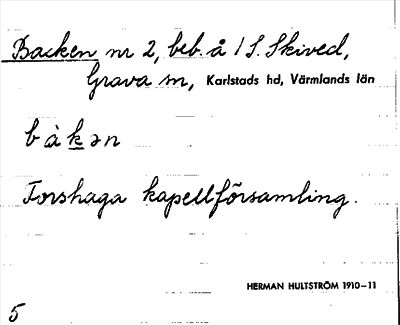 Backen nr 2, beb. å 1 S. Skived,
Grava sn, Karlstads hd, Värmlands län
b àk̲ən
Forshaga kapellförsamling.
HERMAN HULTSTRÖM 1910-11
5